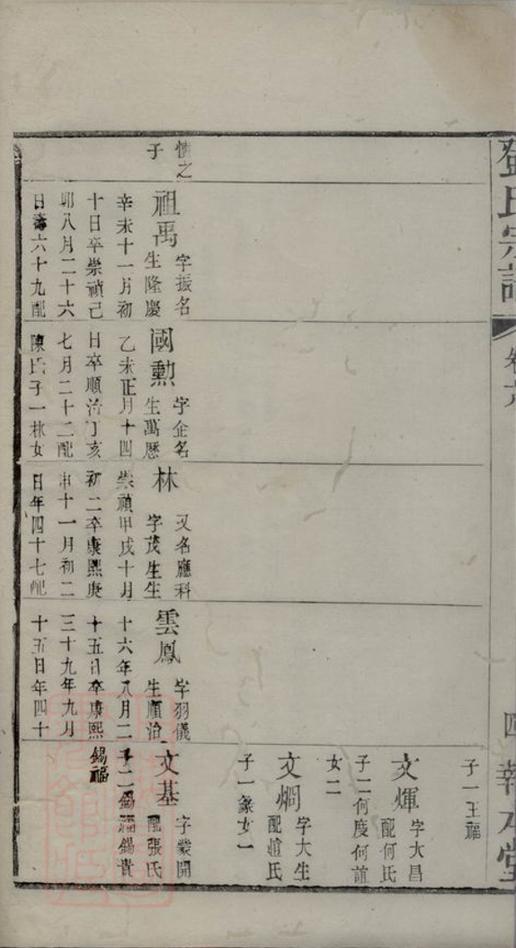 鄧氏宗譜
卷六
四
報本堂
之
子
祖禹
字振名
生隆慶
辛未十一月初
十日卒崇禎己
卯八月二十六
日壽六十九配
國勳
字企名
生萬歷
乙未正月十四
日卒順治丁亥
七月二十二配
陳氏子一林女
林
又名應科
字茂生生
崇禎甲戌十月
初二卒康熙庚
申十一月初二
日年四十七配
雲鳳
字羽儀
生順治
十六年八月二
十五日卒康熙
三十九年九月
十五日年四十
子一王福
文煇
字大昌
配何氏
子二何度何誼
女二
文烱
字大生
配趙氏
子一女一
文基
字業開
配張氏
子二錫福錫貴
錫福